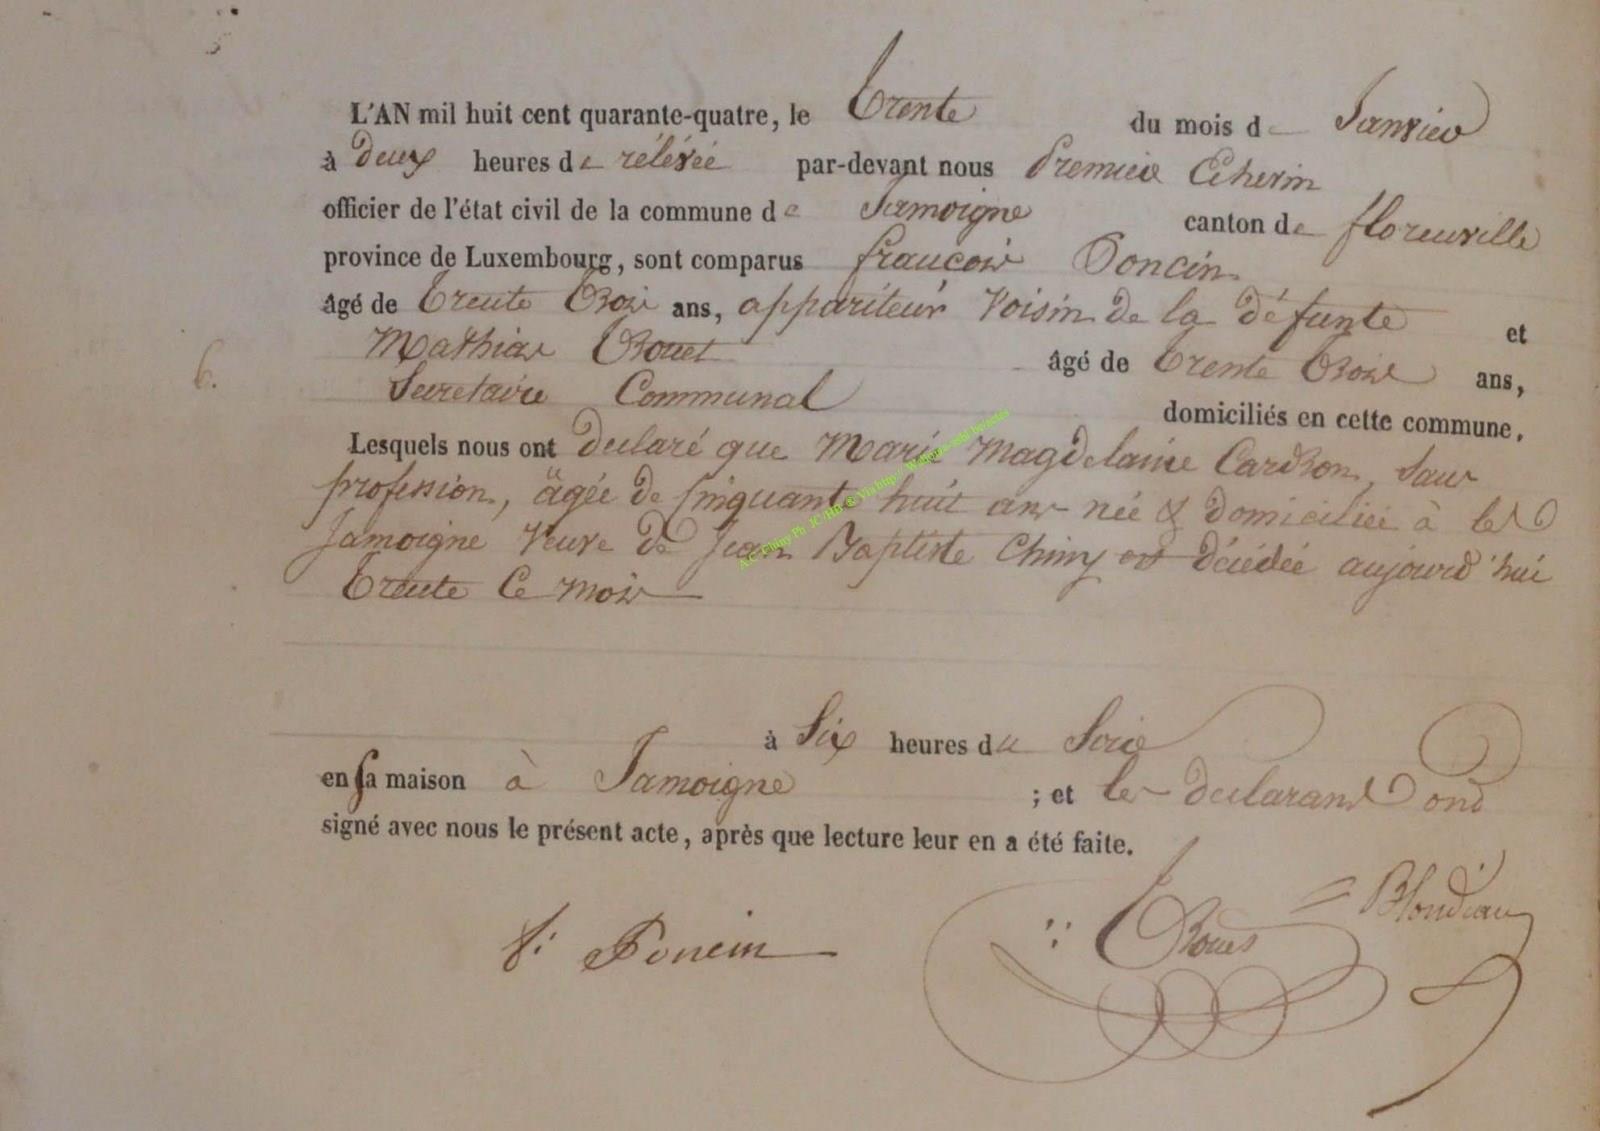 L'AN mil huit cent quarante-quatre, le trente du mois de Janvier
à deux heures de rélévée par-devant nous Premier Echevin
officier de l'état civil de la commune de Jamoigne canton de florenville
province de Luxembourg, sont comparus francois Poncin
âgé de trente trois ans, appariteur voisin de la défunte et
Mathias Trouet âgé de trente trois ans,
6. Secretaire Communal domiciliés en cette commune,
Lesquels nous ont declaré que Marie Magdelaine Cardron, sans
profession, âgée de cinquante huit ans née & domiciliée à
Jamoigne veuve de Jean Baptiste Chiny est décédée aujourd'hui
trente ce mois
à Six heures du Soir
en sa maison à Jamoigne ; et les declarans ont
signé avec nous le présent acte, après que lecture leur en a été faite.
f: Poncin Trouet Blondiau